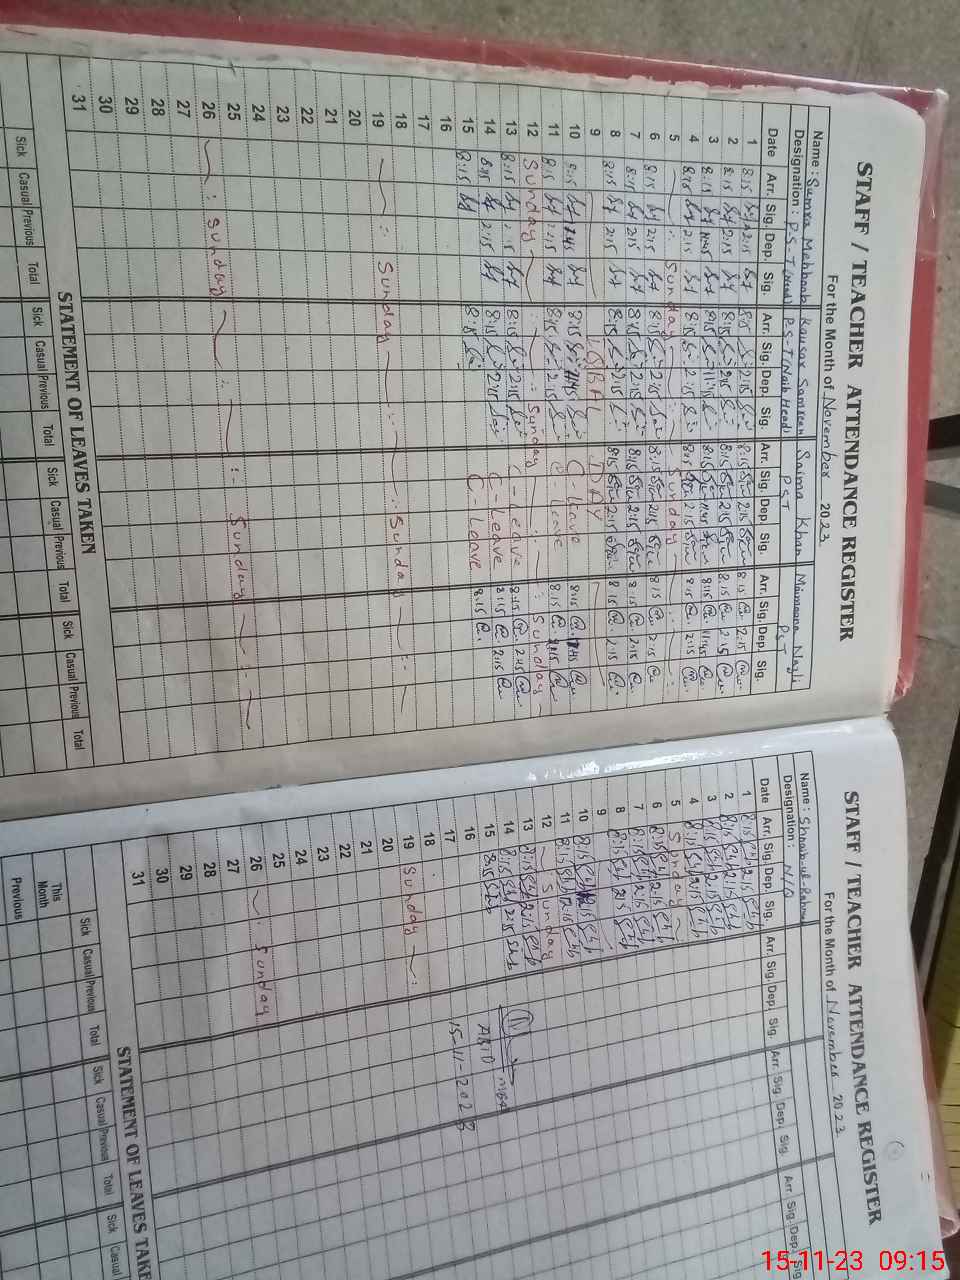 STAFF / TEACHER ATTENDANCE REGISTER
For the Month of November 2023
Name : Samra Mehboob Kausar Samreen Saima Khan Maimoona Nazli
Designation : P.S.T (Head) P.S.T (Naib Head) PST PST
Date Arr. Sig. Dep. Sig. Arr. Sig. Dep. Sig. Arr. Sig. Dep. Sig. Arr. Sig. Dep. Sig.
1 8:15 2:15 8:15 2:15 8:15 2:15 8:15 2:15
2 8:15 2:15 8:15 2:15 8:15 2:15 8:15 2:15
3 8:15 11:45 8:15 11:45 8:15 11:45 8:15 11:45
4 8:15 2:15 8:15 2:15 8:15 2:15 8:15 2:15
5 Sunday Sunday
6 8:15 2:15 8:15 2:15 8:15 2:15 8:15 2:15
7 8:15 2:15 8:15 2:15 8:15 2:15 8:15 2:15
8 8:15 2:15 8:15 2:15 8:15 2:15 8:15 2:15
9 IQBAL DAY
10 8:15 8:15 C-Leave 8:15
11 8:15 2:15 8:15 2:15 C-Leave 8:15 2:15
12 Sunday Sunday Sunday
13 8:15 2:15 8:15 2:15 C-Leave 8:15 2:15
14 8:15 2:15 8:15 2:15 C-Leave 8:15 2:15
15 8:15 8:15 C-Leave 8:15
16
17
18
19 Sunday Sunday
20
21
22
23
24
25
26 Sunday Sunday
27
28
29
30
31
STATEMENT OF LEAVES TAKEN
Sick Casual Previous Total Sick Casual Previous Total Sick Casual Previous Total Sick Casual Previous Total
STAFF / TEACHER ATTENDANCE REGISTER
For the Month of November 2023
Name : Shoaib-ul-Rehman
Designation : N/Q
Date Arr. Sig. Dep. Sig. Arr. Sig. Dep. Sig. Arr. Sig. Dep. Sig. Arr. Sig. Dep. Sig.
1 8:15 2:15
2 8:15 2:15
3 8:15 2:15
4 8:15 2:15
5 Sunday
6 8:15 2:15
7 8:15 2:15
8 8:15 2:15
9
10 8:15 2:15
11 8:15 2:15
12 Sunday
13 8:15 2:15
14 8:15 2:15
15 8:15
16 ABID
17 15-11-2023
18
19 Sunday
20
21
22
23
24
25
26 Sunday
27
28
29
30
31
STATEMENT OF LEAVES TAKE
Sick Casual Previous Total Sick Casual Previous Total Sick Casual
This Month
Previous
15-11-23 09:15